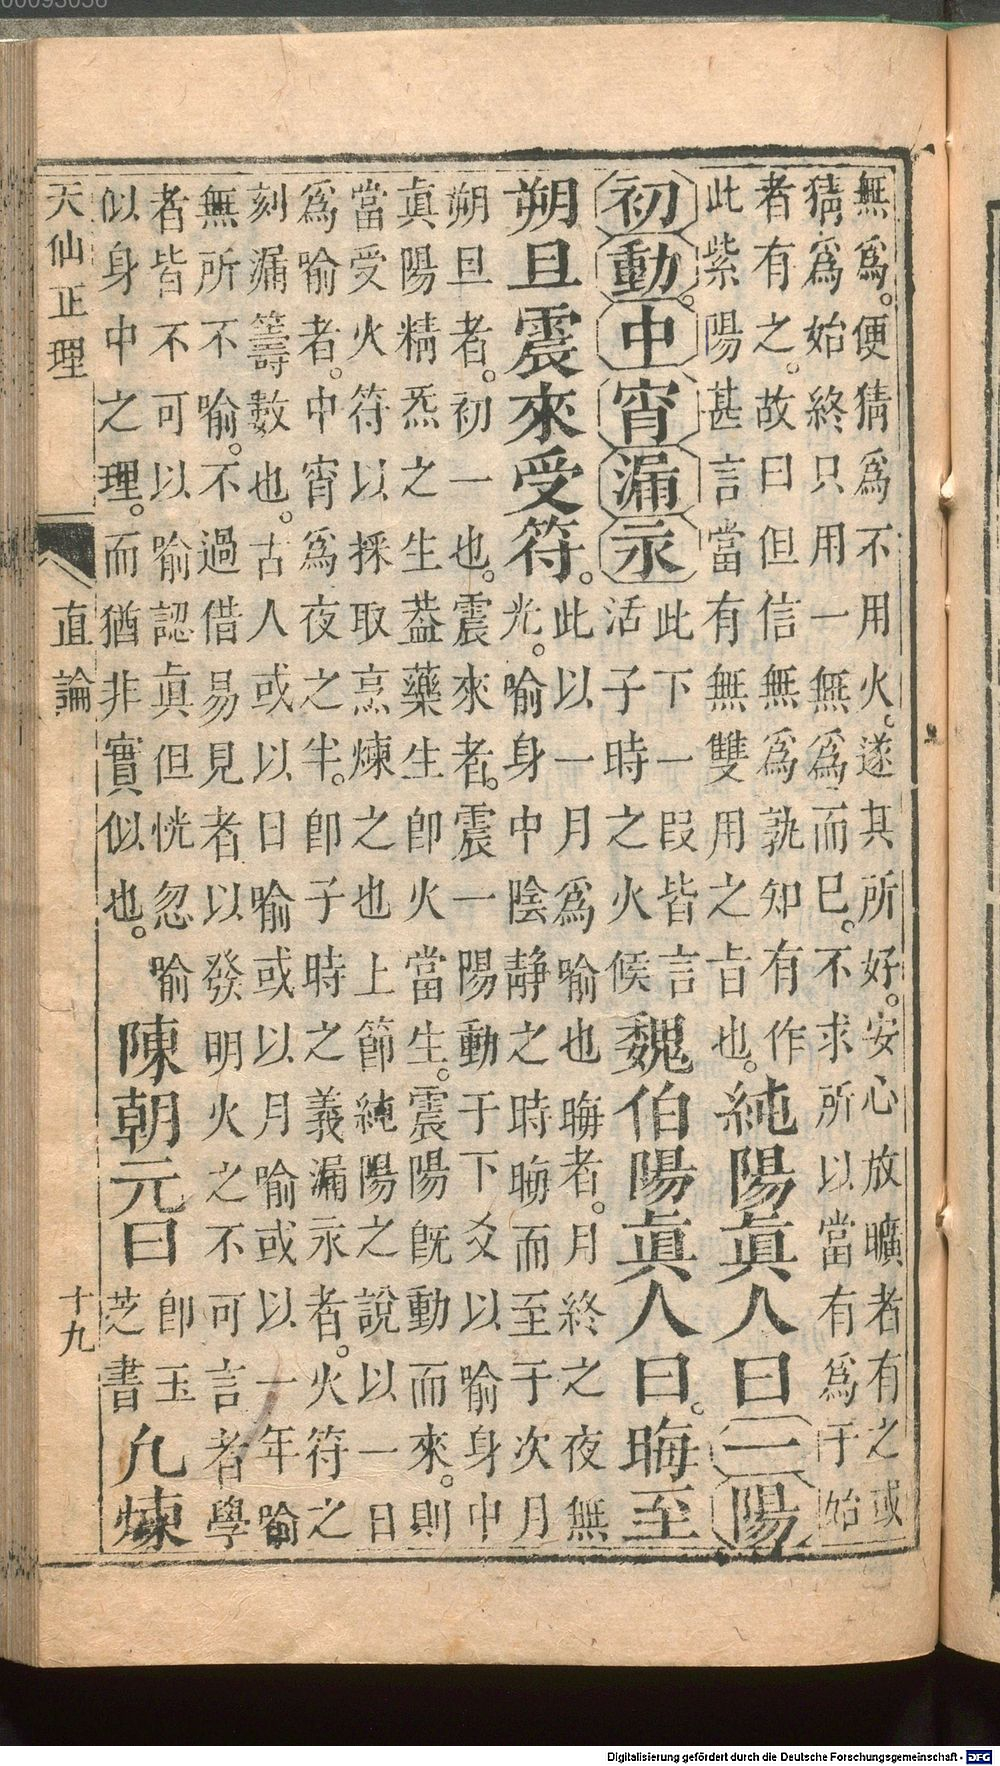 無爲。便猜爲不用火。遂其所好。安心放曠者有之或
猜爲始終只用一無爲而已。不求所以當有爲于始
者有之。故曰但信無爲孰知有作
此紫陽甚言當有無雙用之旨也。
純陽眞人曰一陽
初動。中宵漏永
此下一段皆言
活子時之火候
魏伯陽眞人曰。晦至
朔且震來受符。
此以一月爲喻也晦者。月終之夜無
光。喻身中陰靜之時晦而至于次月
朔旦者。初一也。震來者。震一陽動于下爻以喻身中
眞陽精炁之生葢藥生卽火當生。震陽旣動而來。則
當受火符以採取烹煉之也上節純陽之說以一日
爲喻者。中宵爲夜之半。卽子時之義漏永者。火符之
刻漏籌數也。古人或以日喻或以月喻或以一年喻
無所不喻。不過借易見者以發明火之不可言者學
者皆不可以喻認眞但恍忽喻
似身中之理。而猶非實似也。
陳朝元曰
卽玉
芝書
凡煉
天仙正理 直論 十九
00093056
Digitalisierung gefördert durch die Deutsche Forschungsgemeinschaft - DFG